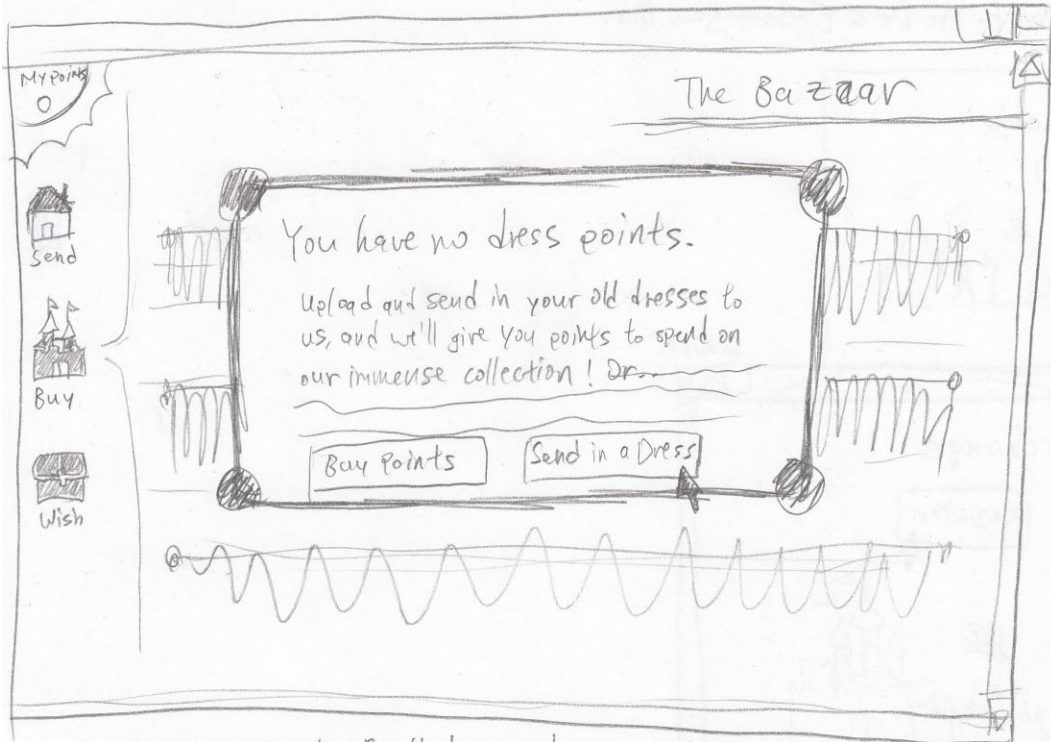 My points
0
The Bazaar
Send
Buy
Wish
You have no dress points.
Upload and send in your old dresses to
us, and we'll give you points to spend on
our immense collection! Or...
Buy Points
Send in a Dress